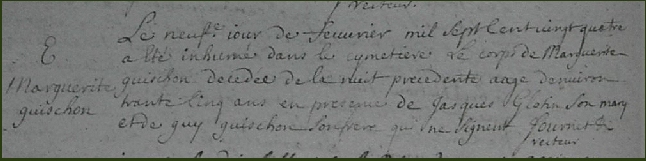 recteur
E
Marguerite
guischon
Le neufe iour de feuurier mil sept Cent vingt quatre
a été inhumé dans le cymetiere Le corps de Marguerite
guischon decedee de la nuit precedente aage denuiron
trante Cinq ans en presence de Jasques Glohu son mary
et de guy guischon son frere qui ne signent fournier
recteur